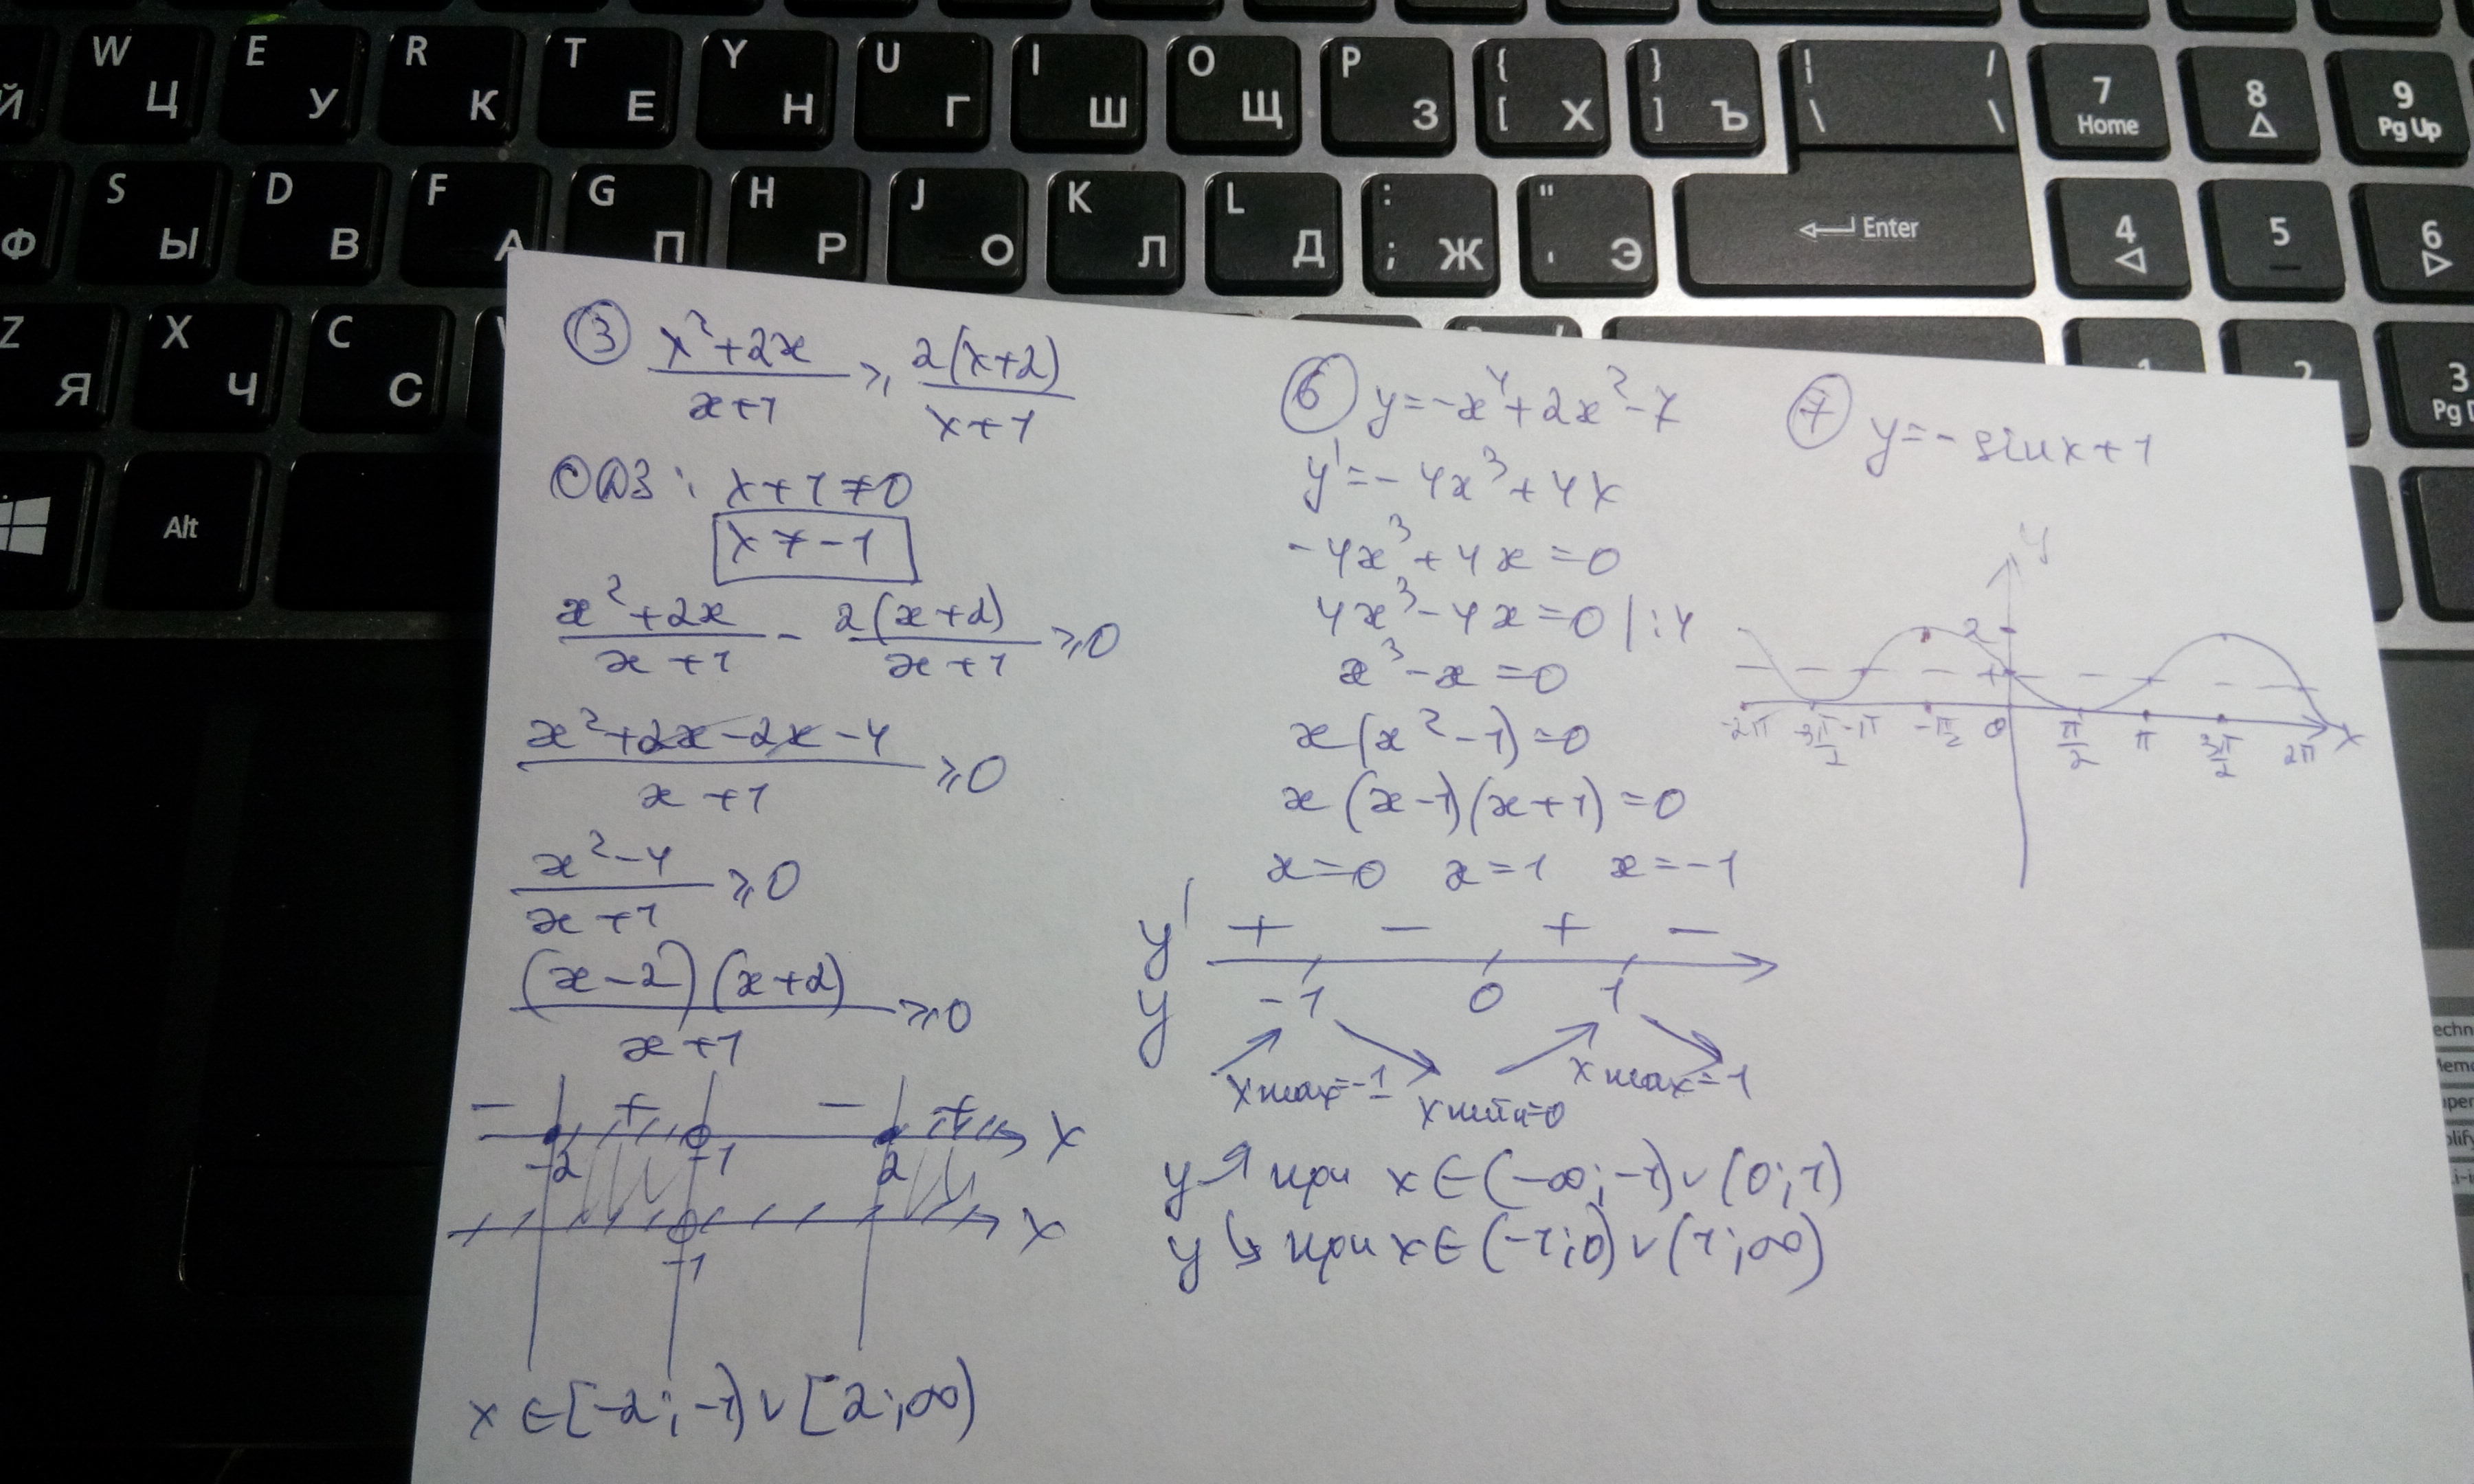 W Ц E У R К T Е Y Н U Г I Ш O Щ P З { [ Х } ] Ъ | \ / \ 7 Home 8 9 Pg Up
Ф S Ы D В F А G П H Р J О K Л L Д : ; Ж " ' Э Enter 4 5 6
Z Я X Ч C С 1 2 3
Alt
③ (x²+2x)/(x+1) ⩾ 2(x+2)/(x+1)
ОДЗ: x+1≠0
x≠-1
(x²+2x)/(x+1) - 2(x+2)/(x+1) ⩾0
(x²+2x-2x-4)/(x+1) ⩾0
(x²-4)/(x+1) ⩾0
(x-2)(x+2)/(x+1) ⩾0
- + - + x
-2 -1 2
x
-1
x∈[-2;-1)∨[2;∞)
⑥ y=-x⁴+2x²-7
y'=-4x³+4x
-4x³+4x=0
4x³-4x=0 |:4
x³-x=0
x(x²-1)=0
x(x-1)(x+1)=0
x=0 x=1 x=-1
y' + - + -
y -1 0 1
xmax=-1 xmin=0 xmax=1
y↗ при x∈(-∞;-1)∨(0;1)
y↘ при x∈(-1;0)∨(1;∞)
⑦ y=-sinx+1
y
2
1
-2π -3π/2 -π -π/2 0 π/2 π 3π/2 2π x